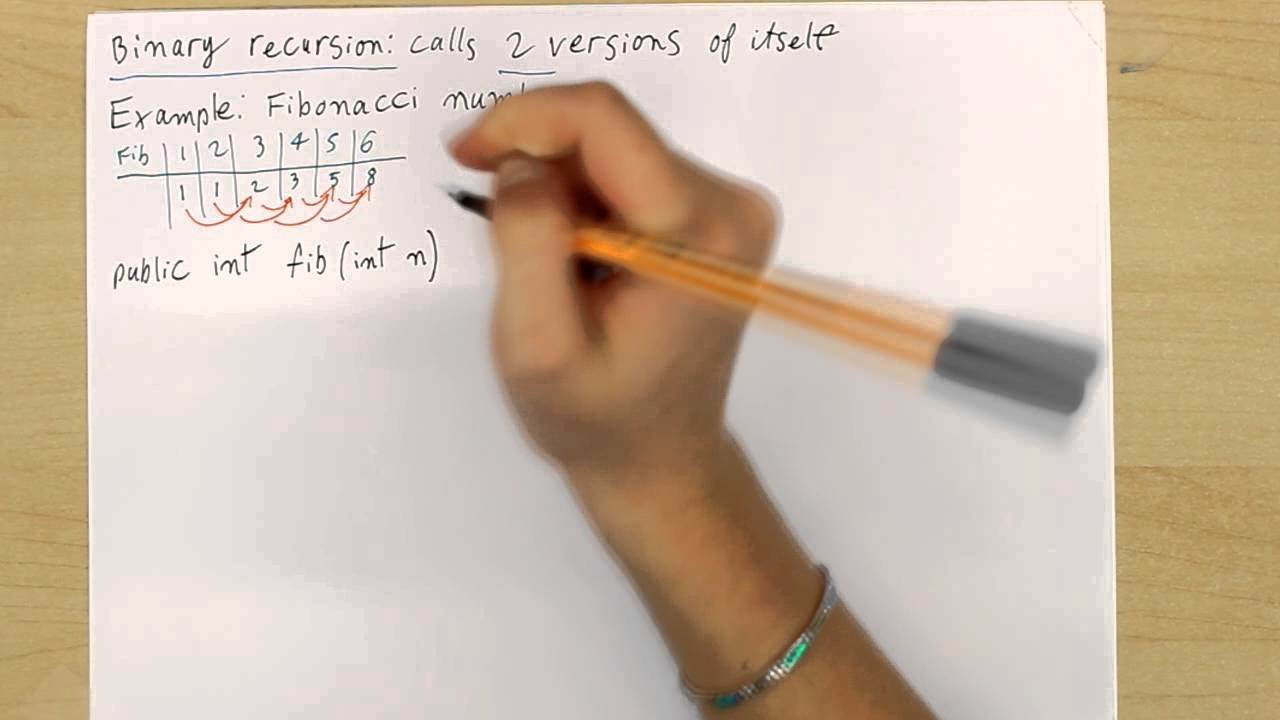 Binary recursion: calls 2 versions of itself
Example: Fibonacci
Fib 1 2 3 4 5 6
1 1 2 3 5 8
public int fib (int n)